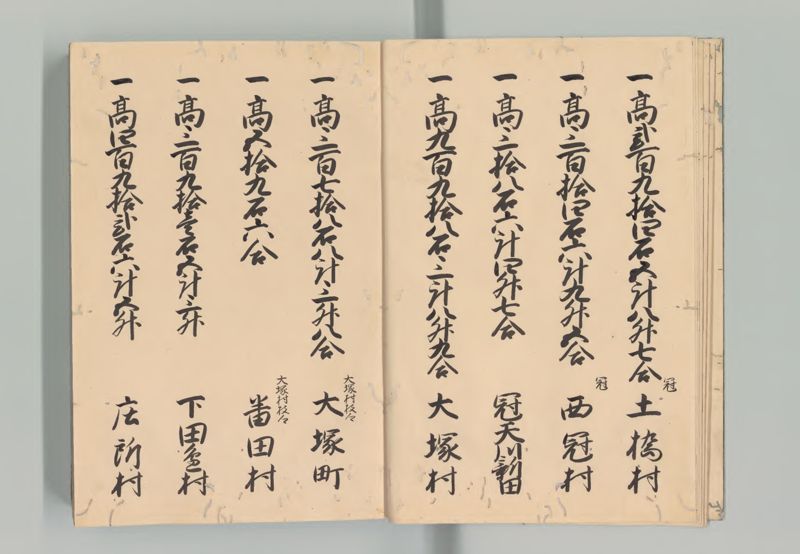 一高弐百九拾四石五斗八升七合 冠 土橋村
一高三百拾四石六斗九升五合 冠 西冠村
一高三拾八石六斗四升七合 冠天川新田
一高九百九拾八石三斗八升九合 大塚村
一高三百七拾八石八斗三升八合 大塚村枝々 大塚町
一高五拾九石六合 大塚村枝々 番田村
一高三百九拾壱石五斗三升 下田辺村
一高四百九拾弐石六斗五升 庄所村